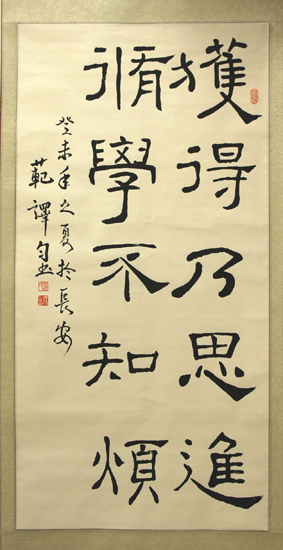 獲得乃思進
脩學不知煩
癸未年之夏於長安
範譯勻書